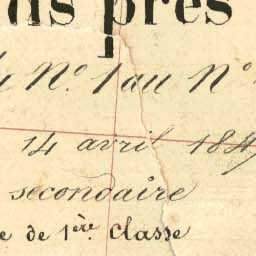 ds près
N° 1 au N°
14 avril 184
secondaire
e de 1ère Classe